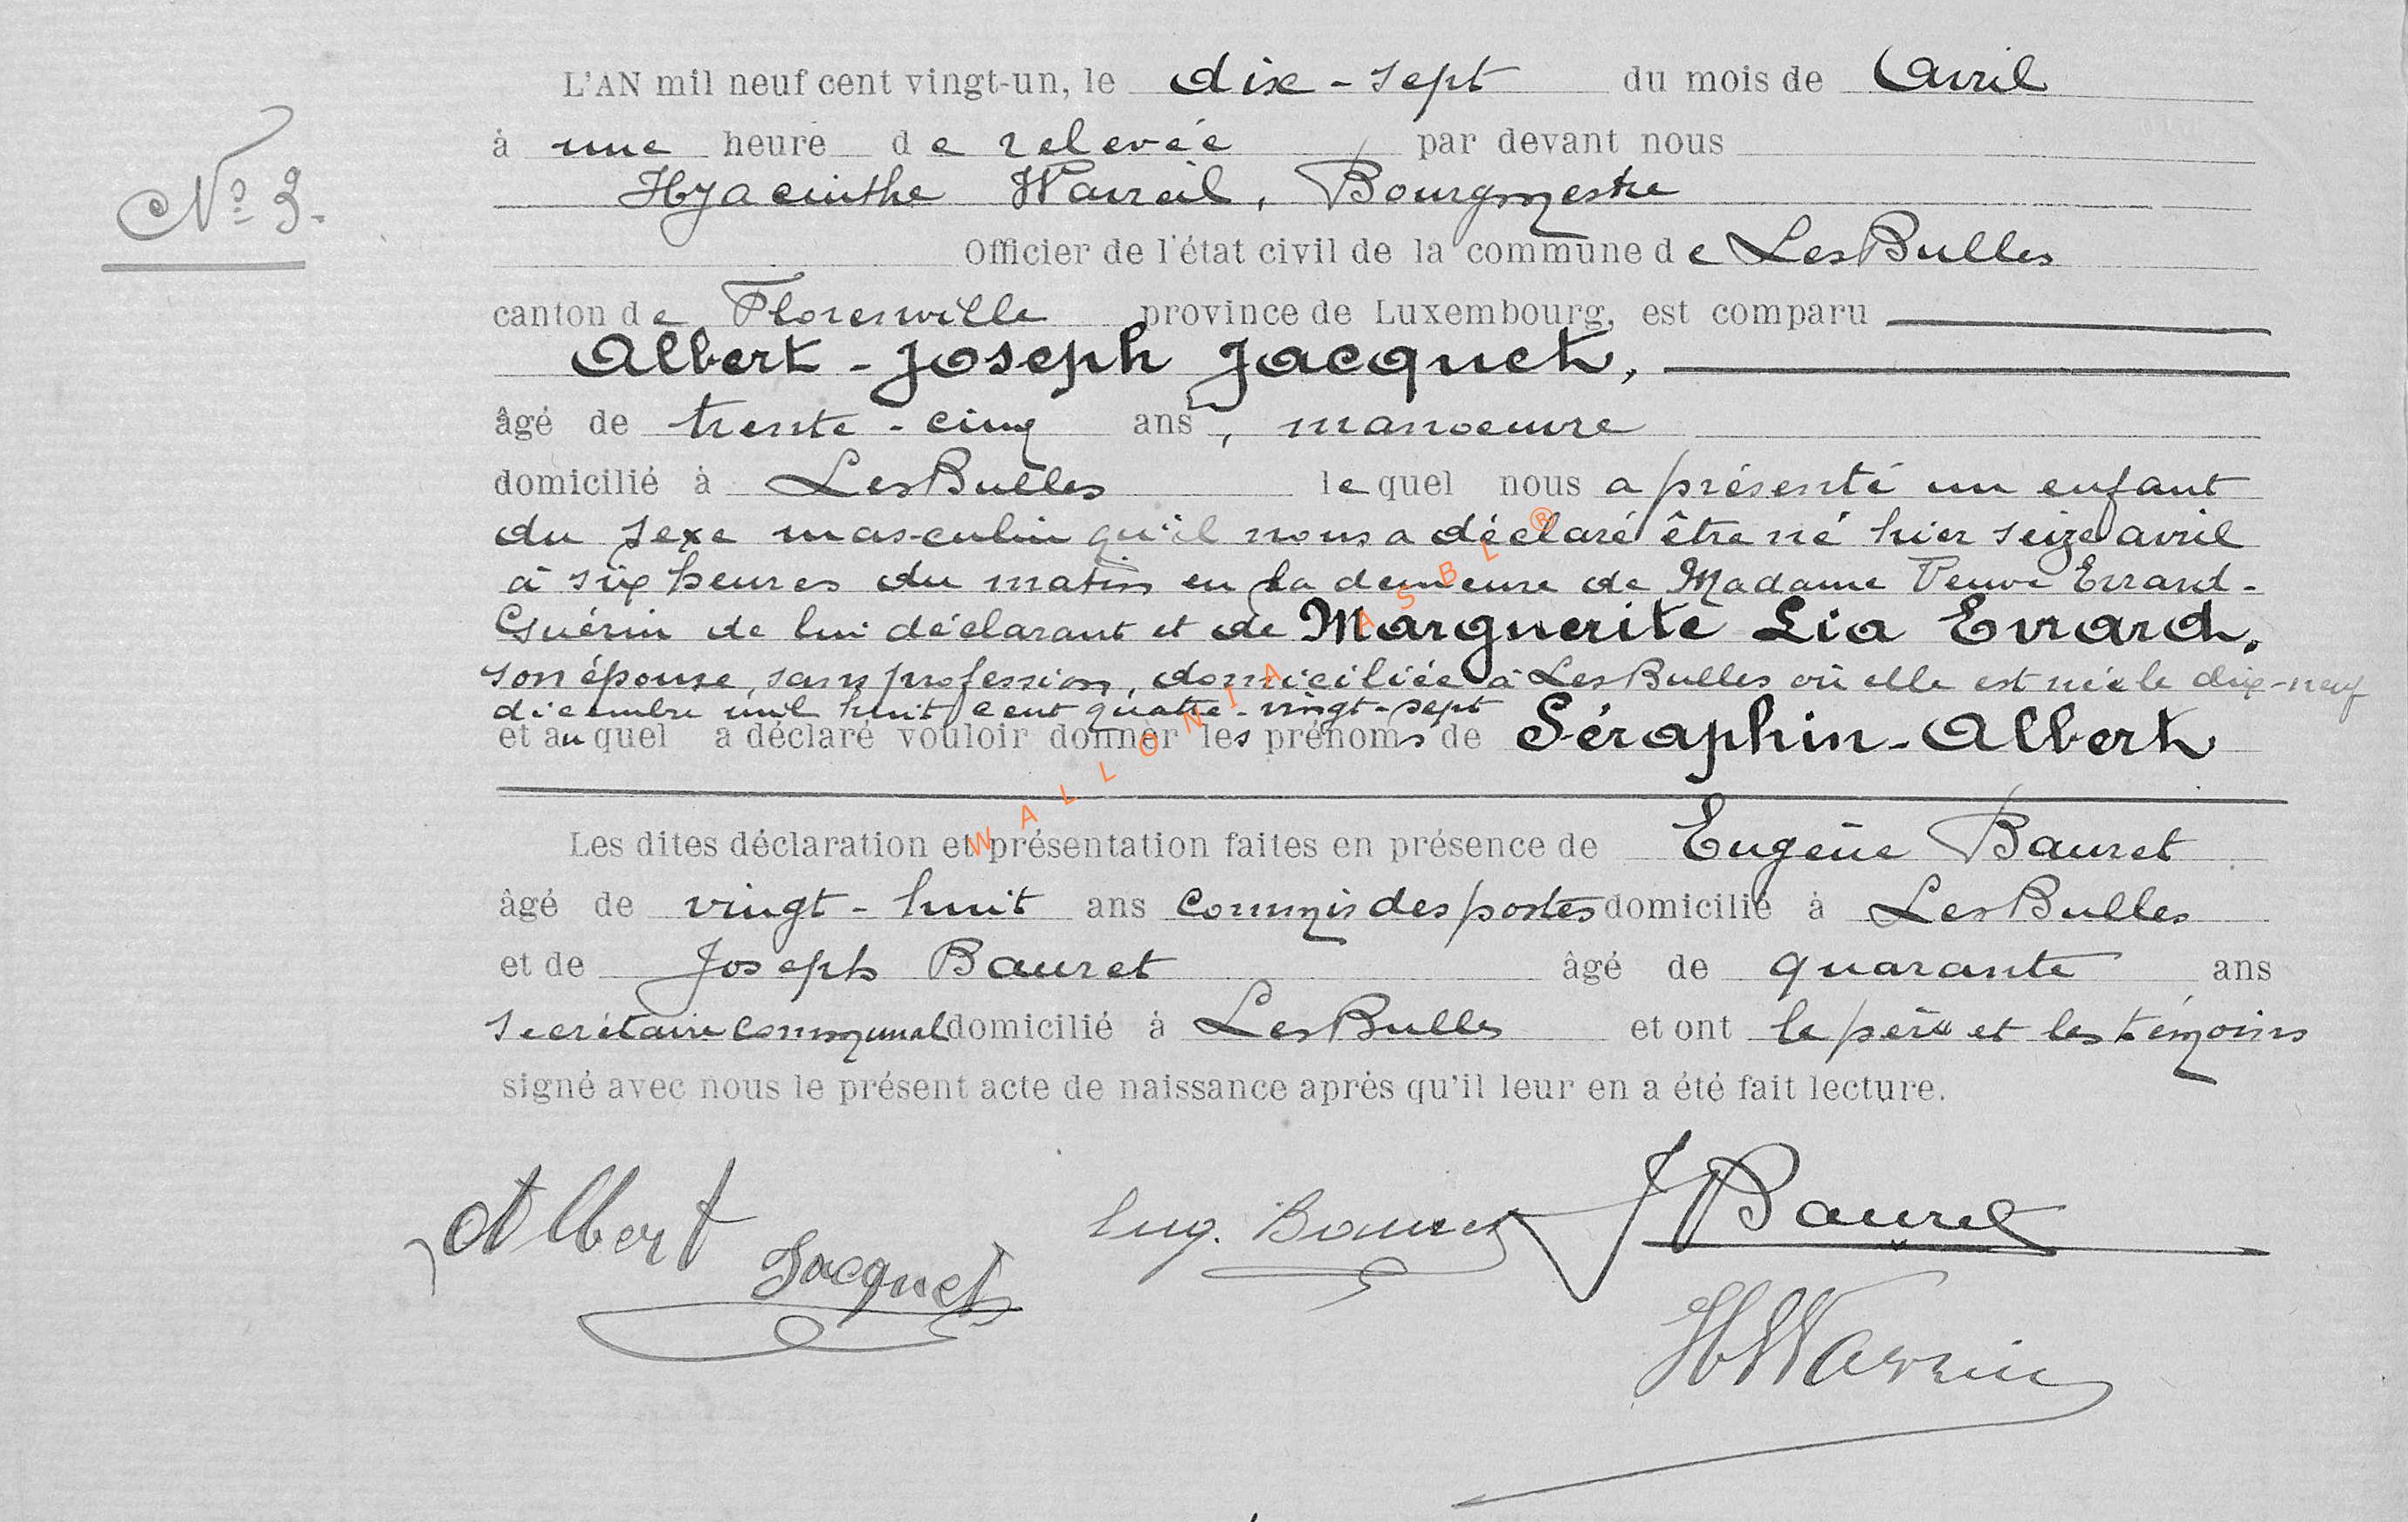 L'AN mil neuf cent vingt-un, le dix-sept du mois de Avril
N° 3.
à une heure de relevée par devant nous
Hyacinthe, Bourgmestre
Officier de l'état civil de la commune de LesBulles
canton de Florenville province de Luxembourg, est comparu
Albert-Joseph Jacquet,
âgé de trente-cinq ans, manoeuvre
domicilié à LesBulles lequel nous a présenté un enfant
du sexe masculin qu'il nous a déclaré être né hier seize avril
à six heures du matin en la demeure de Madame Veuve Evrard-
Guérin de lui déclarant et de Marguerite Lia Evrard.
son épouse, sans profession, domiciliée à LesBulles où elle est née le dix-neuf
décembre mil huit cent quatre-vingt-sept
et auquel a déclaré vouloir donner les prénoms de Séraphin-Albert
Les dites déclaration et présentation faites en présence de Eugène Bauret
âgé de vingt-huit ans commis des postes domicilié à LesBulles
et de Joseph Bauret âgé de quarante ans
secrétaire communal domicilié à LesBulles et ont le père et les témoins
signé avec nous le présent acte de naissance après qu'il leur en a été fait lecture.
Albert Jacquet
Eug. Bauret
J Bauret
WALLONIA ASBL ®